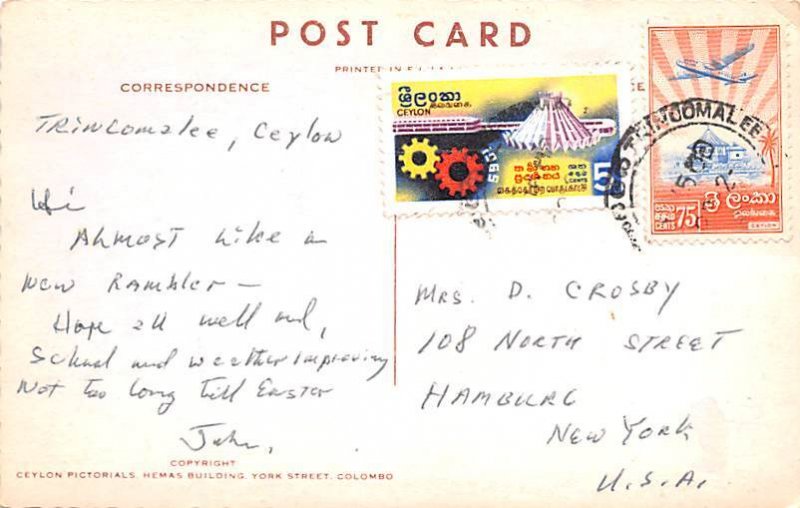 POST CARD
PRINTED IN
CORRESPONDENCE
ශ්‍රී ලංකා
இலங்கை
CEYLON
1965
5
CENTS
TRINCOMALEE
ශ්‍රී ලංකා
இலங்கை
සත
CENTS 75
CEYLON
Trincomalee, Ceylon
Hi
Almost like a
new Rambler —
Hope all well and,
School and weather improving
Not too long till Easter
John,
Mrs. D. CROSBY
108 NORTH STREET
HAMBURG
NEW YORK
U.S.A.
COPYRIGHT
CEYLON PICTORIALS. HEMAS BUILDING, YORK STREET, COLOMBO